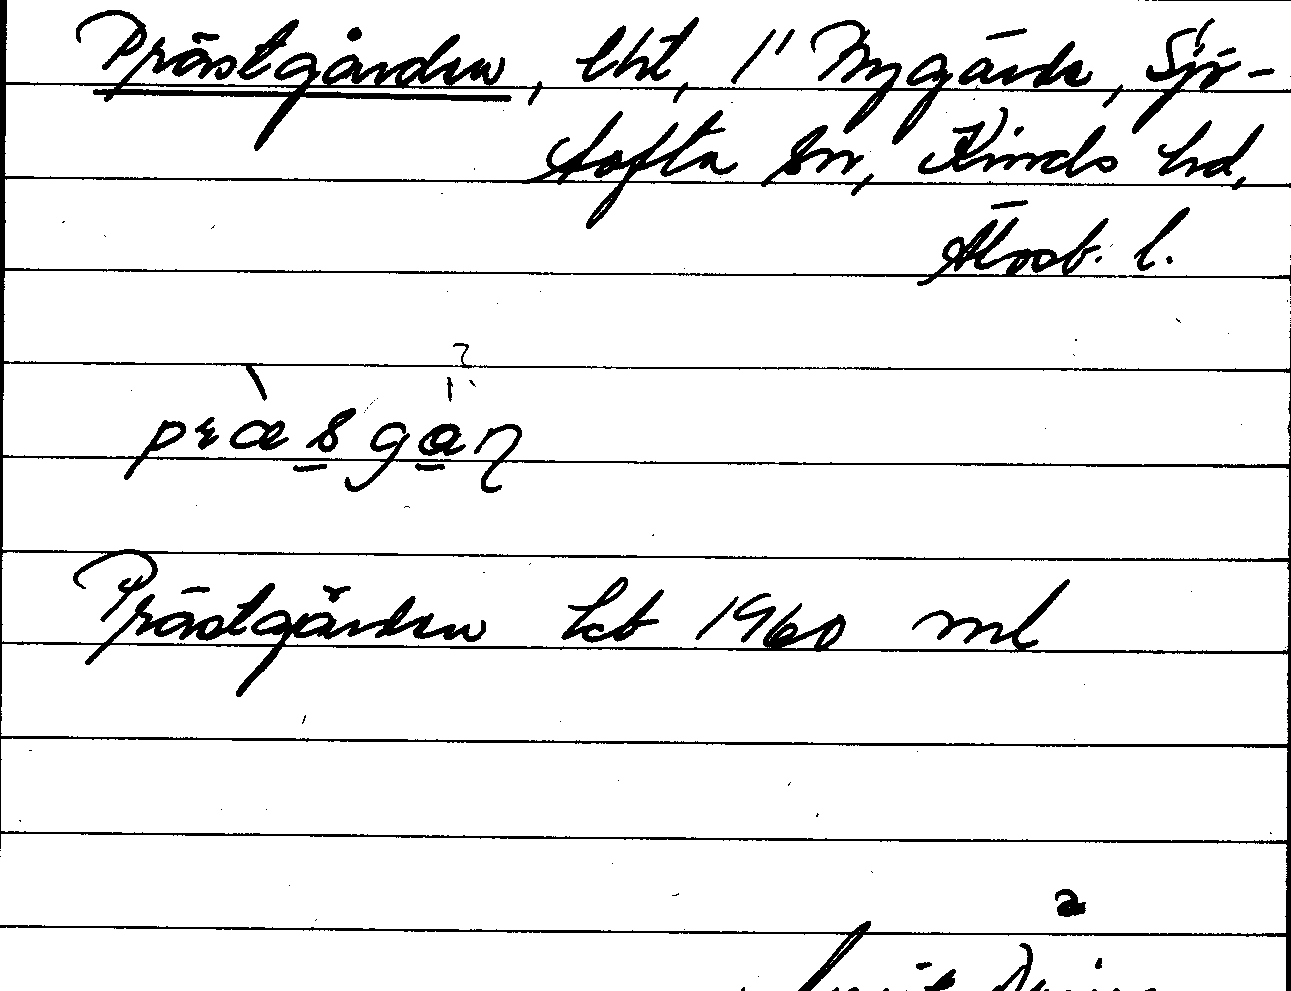 Prästgården, lht, i Nygärde, Sjö-
tofta sn, Kinds hd,
Älvsb. l.
præsgan
Prästgården kb 1960 ml
a